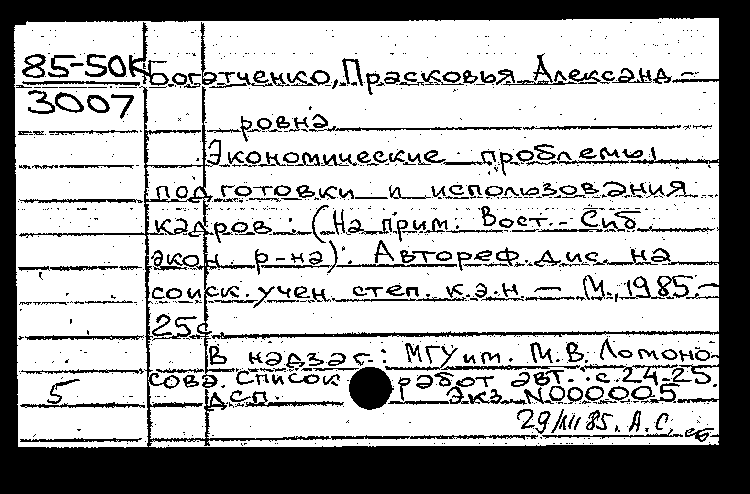 85-50К Богатченко, Прасковья Александ-
3007
ровна.
Экономические проблемы
подготовки и использования
кадров: (На прим. Вост.-Сиб.
экон. р-на): Автореф. дис. на
соиск. учен. степ. к.э.н — М., 1985.-
25с.
В надзаг.: МГУ им. М.В. Ломоно-
5 сова. Список работ авт.: с.24-25.
ДСП. Экз. N000005
29/III 85. А.С.